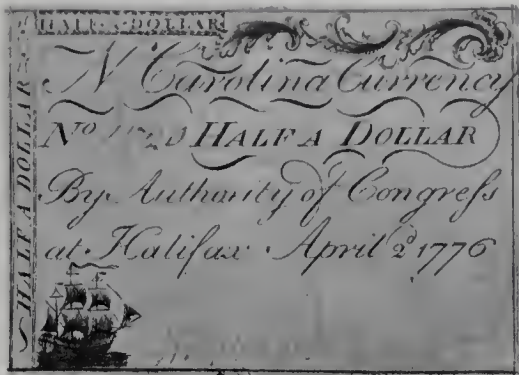 HALF·A·DOLLAR
HALF A DOLLAR
N Carolina Currency
No HALF A DOLLAR
By Authority of Congreſs
at Halifax April 2d 1776